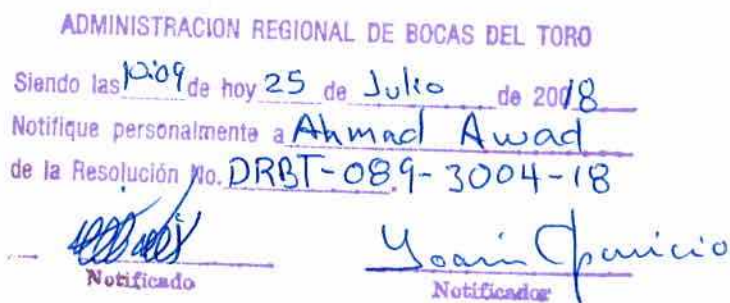 ADMINISTRACION REGIONAL DE BOCAS DEL TORO
Siendo las 10:09 de hoy 25 de Julio de 20018
Notifique personalmente a Ahmad Awad
de la Resolución No. DRBT-089-3004-18
Yoarin Aparicio
Notificado Notificador